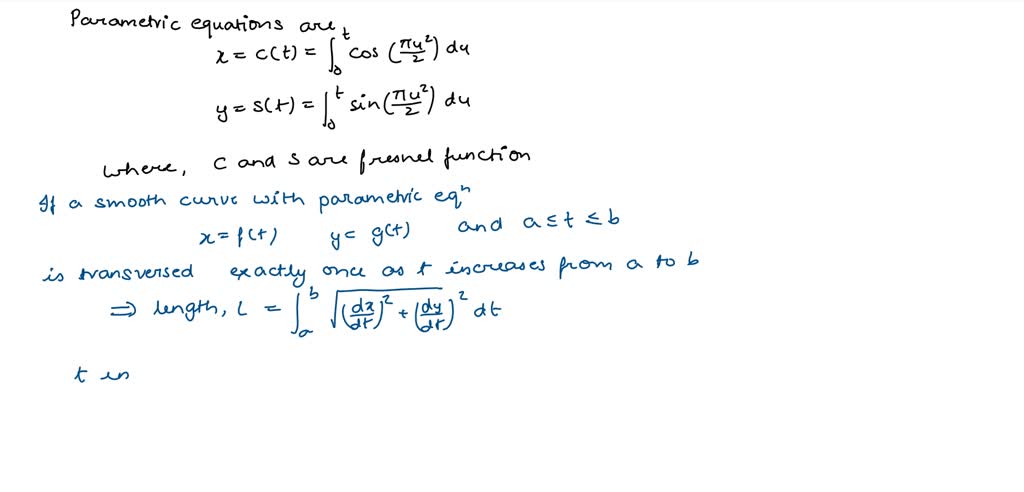 Parametric equations are
x = c(t) = ∫₀ᵗ cos (πu²/2) du
y = s(t) = ∫₀ᵗ sin(πu²/2) du
where, C and S are fresnel function
If a smooth curve with parametric eqⁿ
x = f(t) y = g(t) and a ≤ t ≤ b
is transversed exactly once as t increases from a to b
⇒ length, L = ∫ₐᵇ √((dx/dt)² + (dy/dt)²) dt
t in